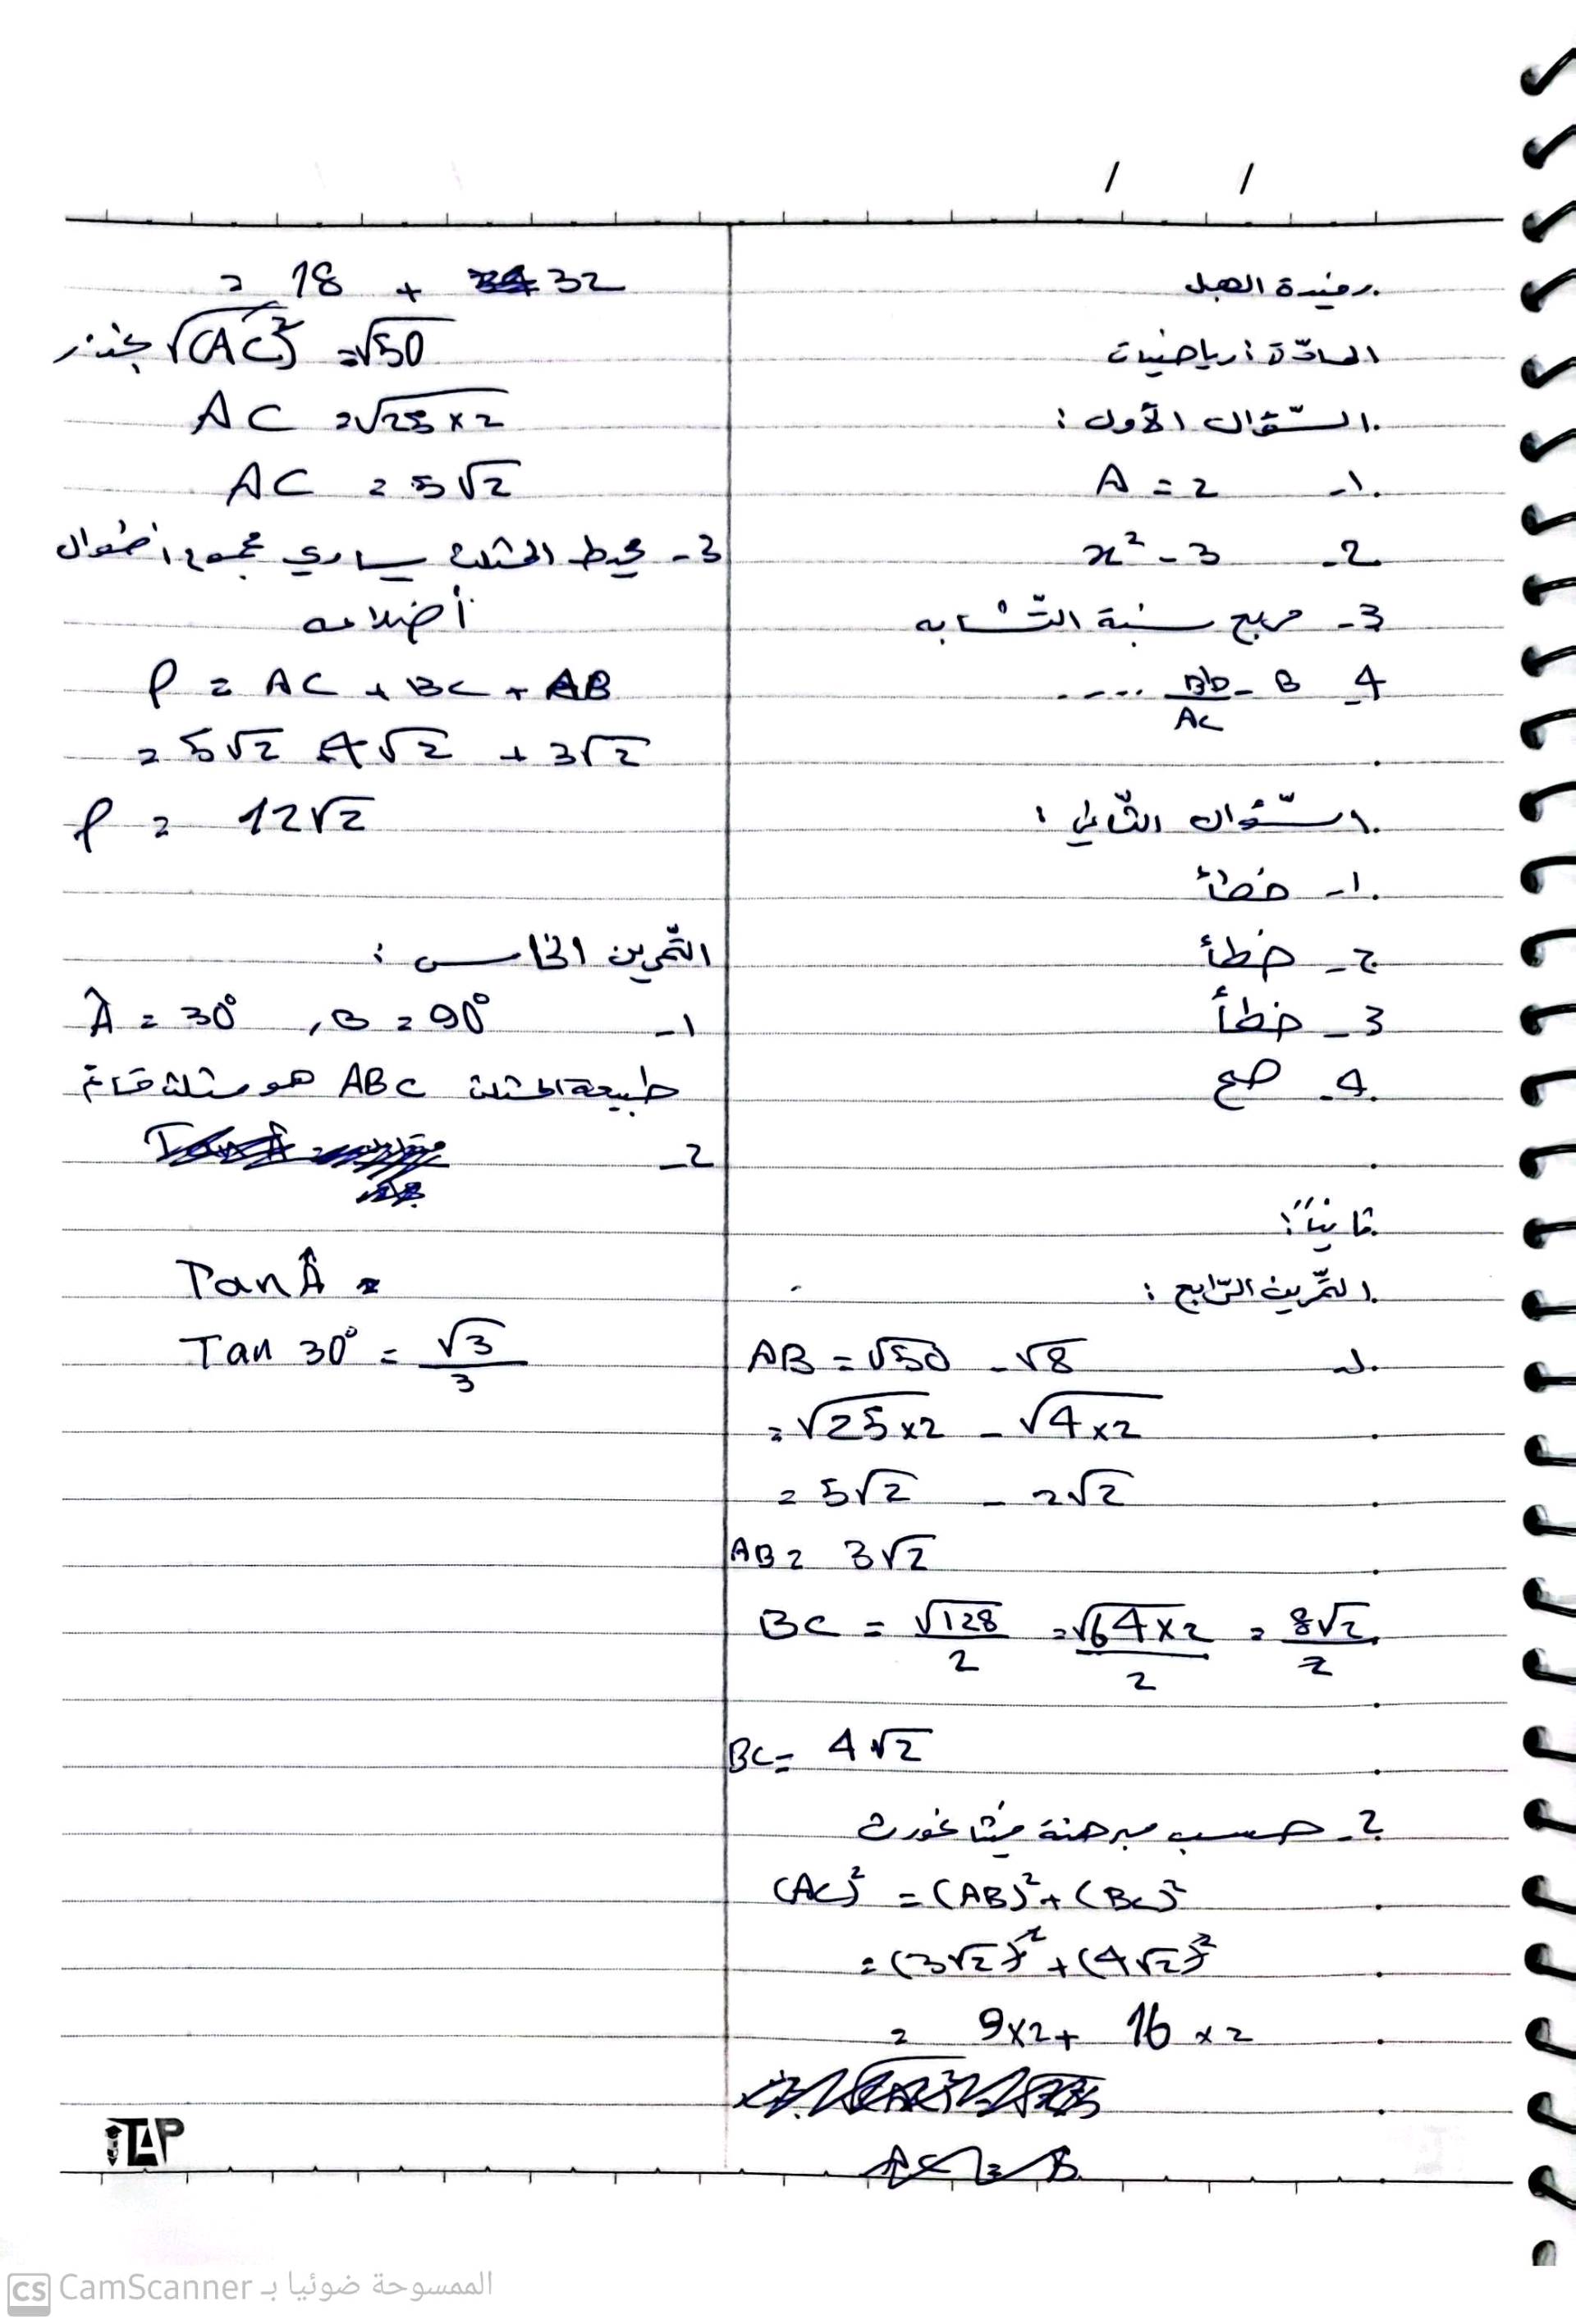 رفيدة الهبل
المادّة: رياضيات
السّؤال الأول:
1- A = 2
2- x² - 3
3- مربع نسبة التّشابه
4- B - .... /AC
السّؤال الثّاني:
1- خطأ
2- خطأ
3- خطأ
4- صح
ثانياً:
التّمرين الرّابع:
1- AB = √50 - √8
= √25×2 - √4×2
= 5√2 - 2√2
AB = 3√2
BC = √128/2 = √64×2/2 = 8√2/2
BC = 4√2
2- حسب مبرهنة فيثاغورث
(AC)² = (AB)² + (BC)²
= (3√2)² + (4√2)²
= 9×2 + 16×2
= 18 + 32
√(AC)² = √50 بجذر
AC = √25×2
AC = 5√2
3- محيط المثلث يساوي مجموع أطوال
أضلاعه
P = AC + BC + AB
= 5√2 + 4√2 + 3√2
P = 12√2
التّمرين الخامس:
1- Â = 30° , B = 90°
طبيعة المثلث ABC هو مثلث قائم
2-
Tan Â =
Tan 30° = √3/3
iTAP
CS CamScanner الممسوحة ضوئيا بـ